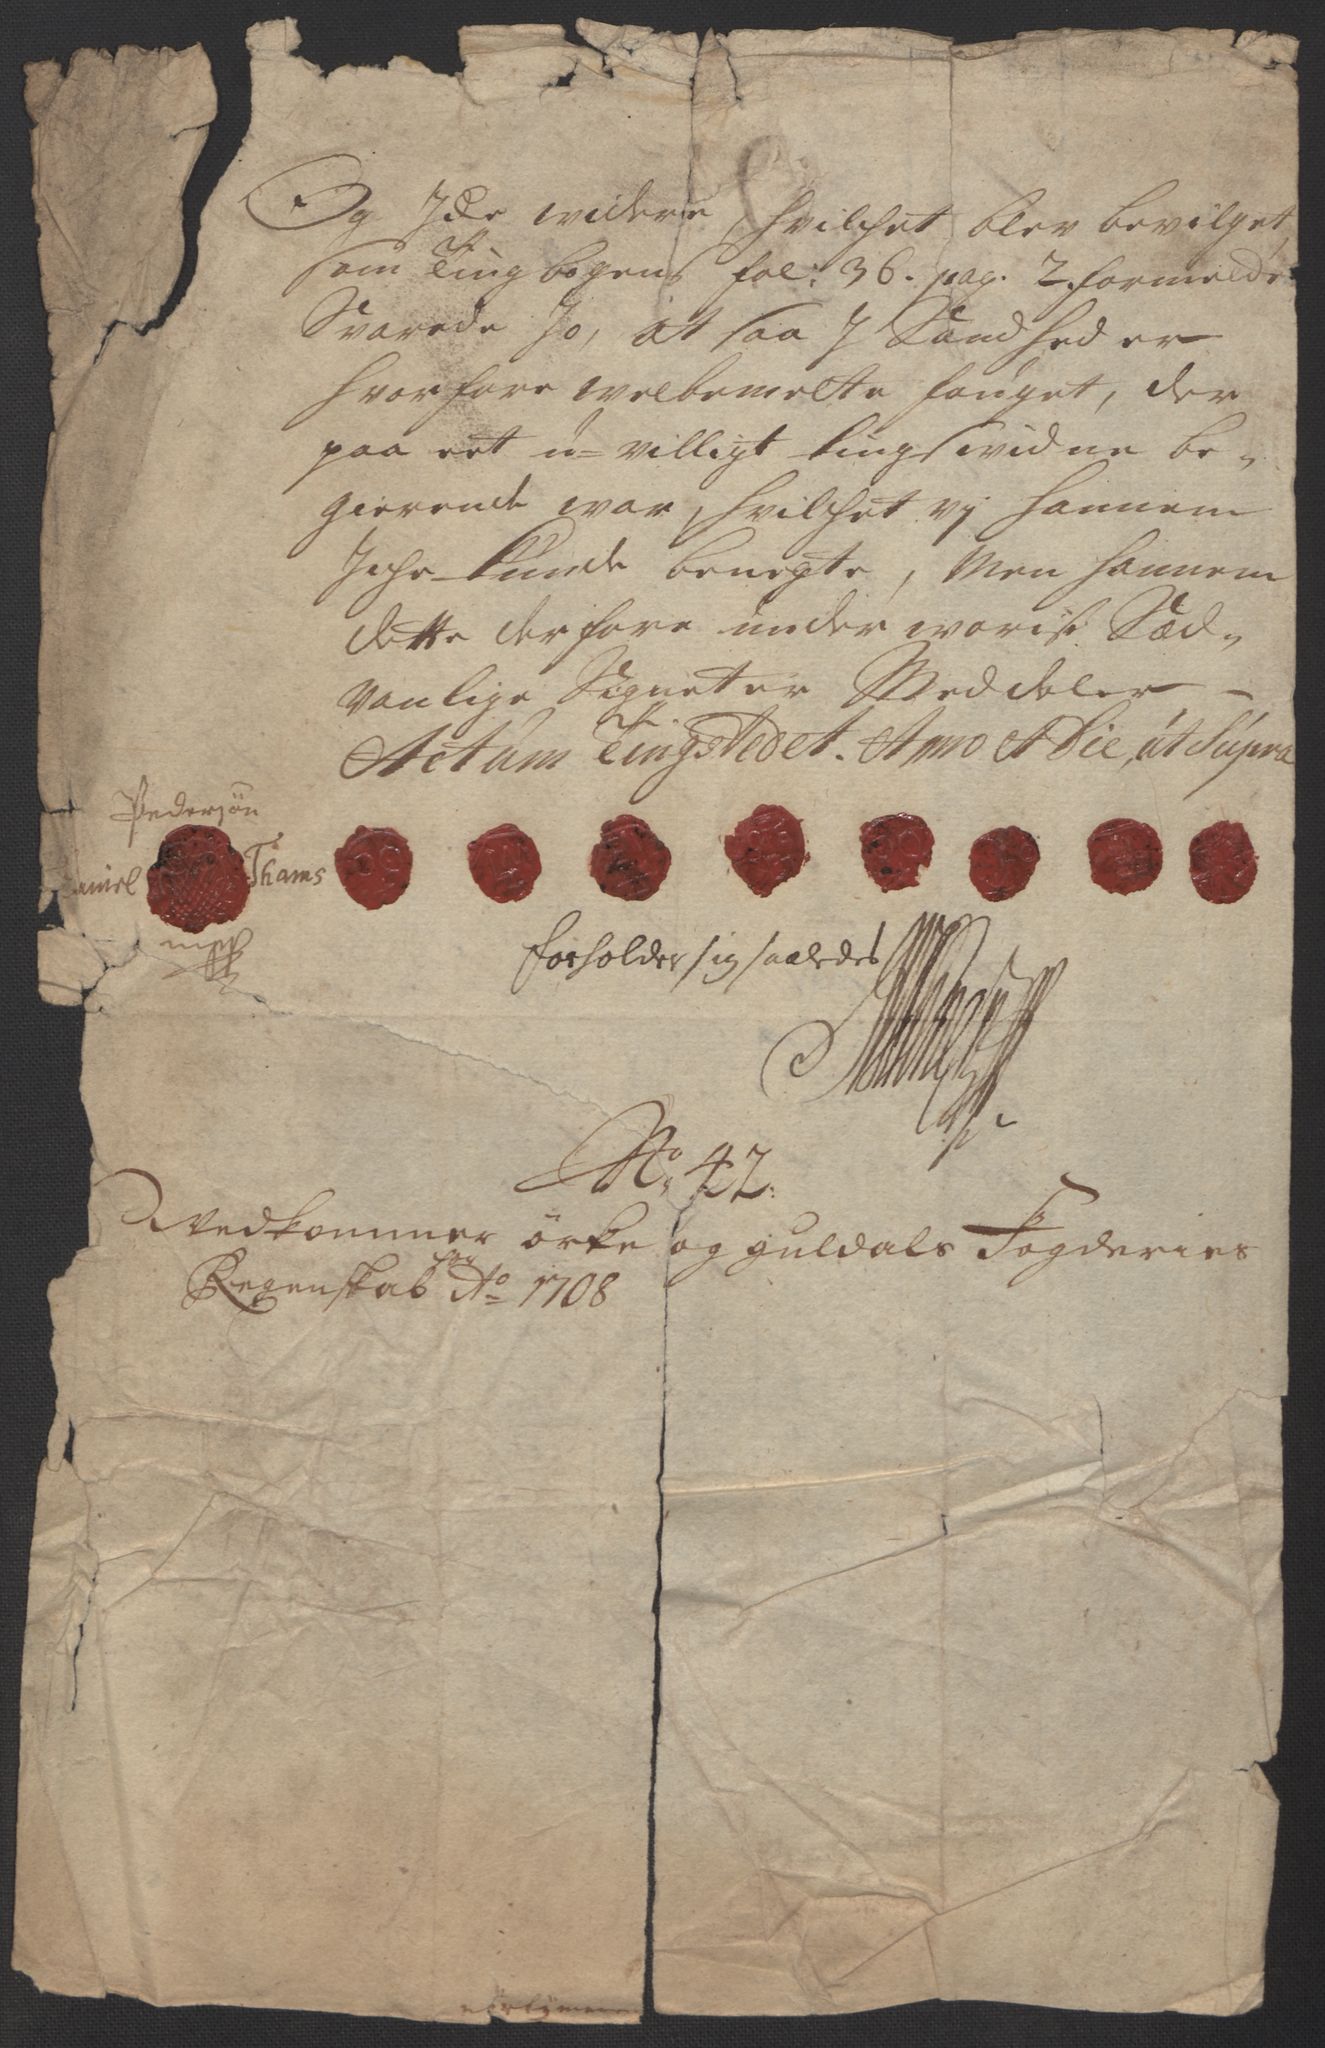 Og Ide widere, hvilchet blev bevilget,
som Tingbogens fol: 36. pag. 2 formelder
Svarede Jo, at saa J Sandhed er
hvorfore welbemelte fouget, der
paa eet u=villigt tings widne be-
gierende war, hvilchet vj hannem
Iche kunde benegte, Men hannem
dette derfore under woris Sæd-
vanlige Signeter Meddeler -
Actum Tingstedet. Anno et Die, ut Supra
Pedersøn
aniel Thams
mpp
forholder sig saaledes
No. 42.
Vedkommer örke og guldals Fogderies
Regenskab pro Ao 1708